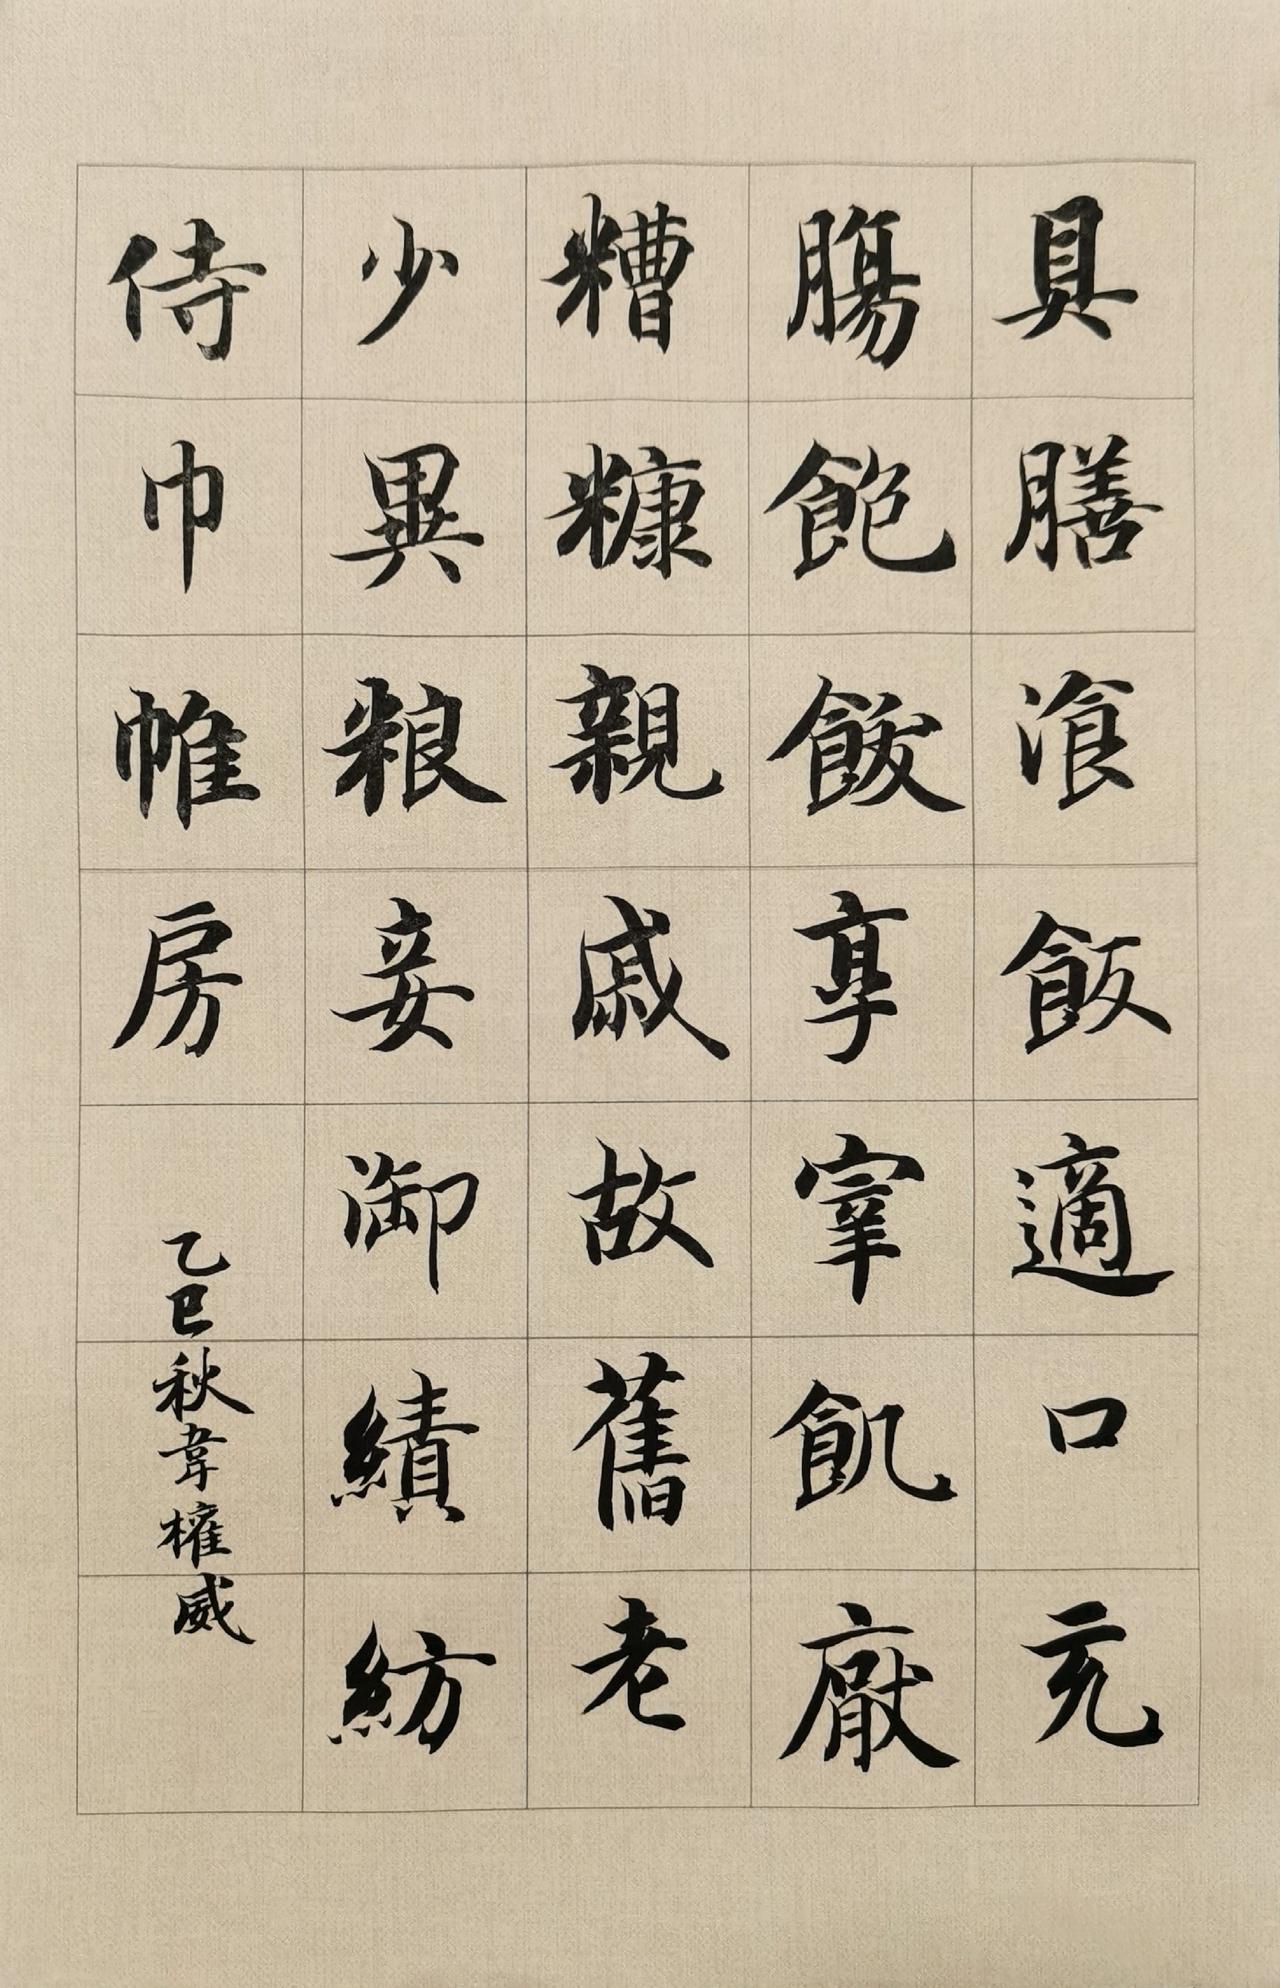 具膳飡飯適口充
腸飽飫享宰飢厭
糟糠親戚故舊老
少異粮妾御績紡
侍巾帷房
乙巳秋韋權威